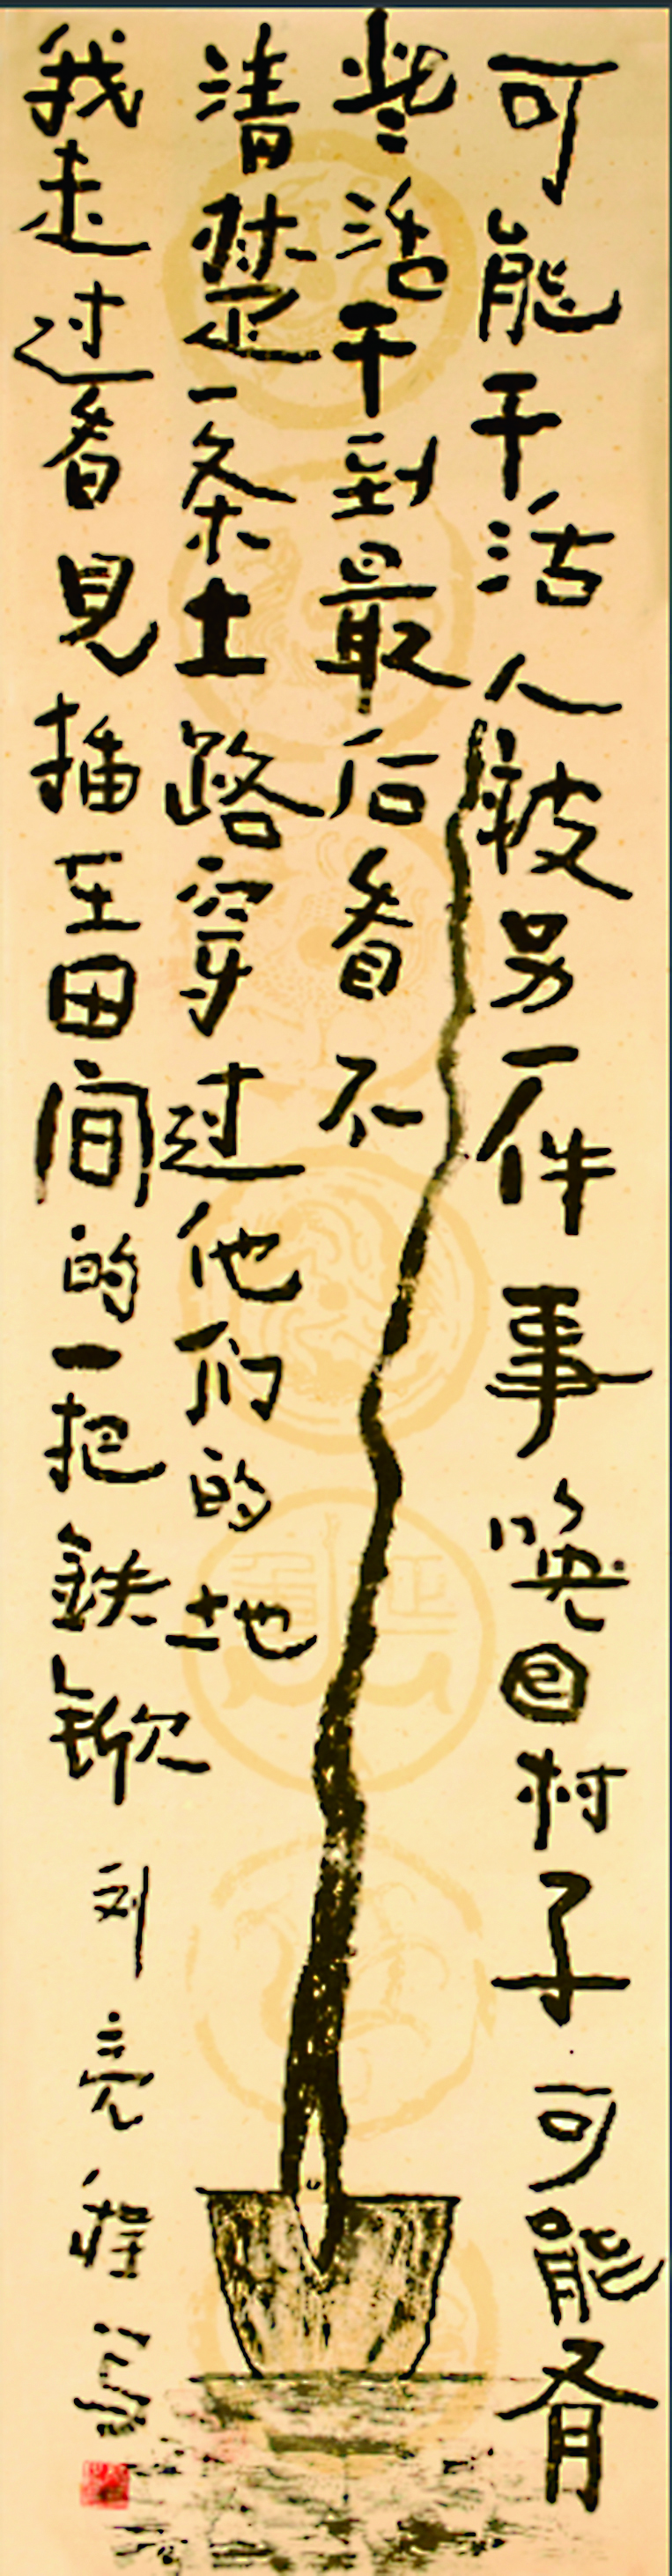 可能干活人被另一件事唤回村子可能有
些活干到最后看不
清楚一条土路穿过他们的土地
我走过看見插在田间的一把鉄锨
刘亮程写